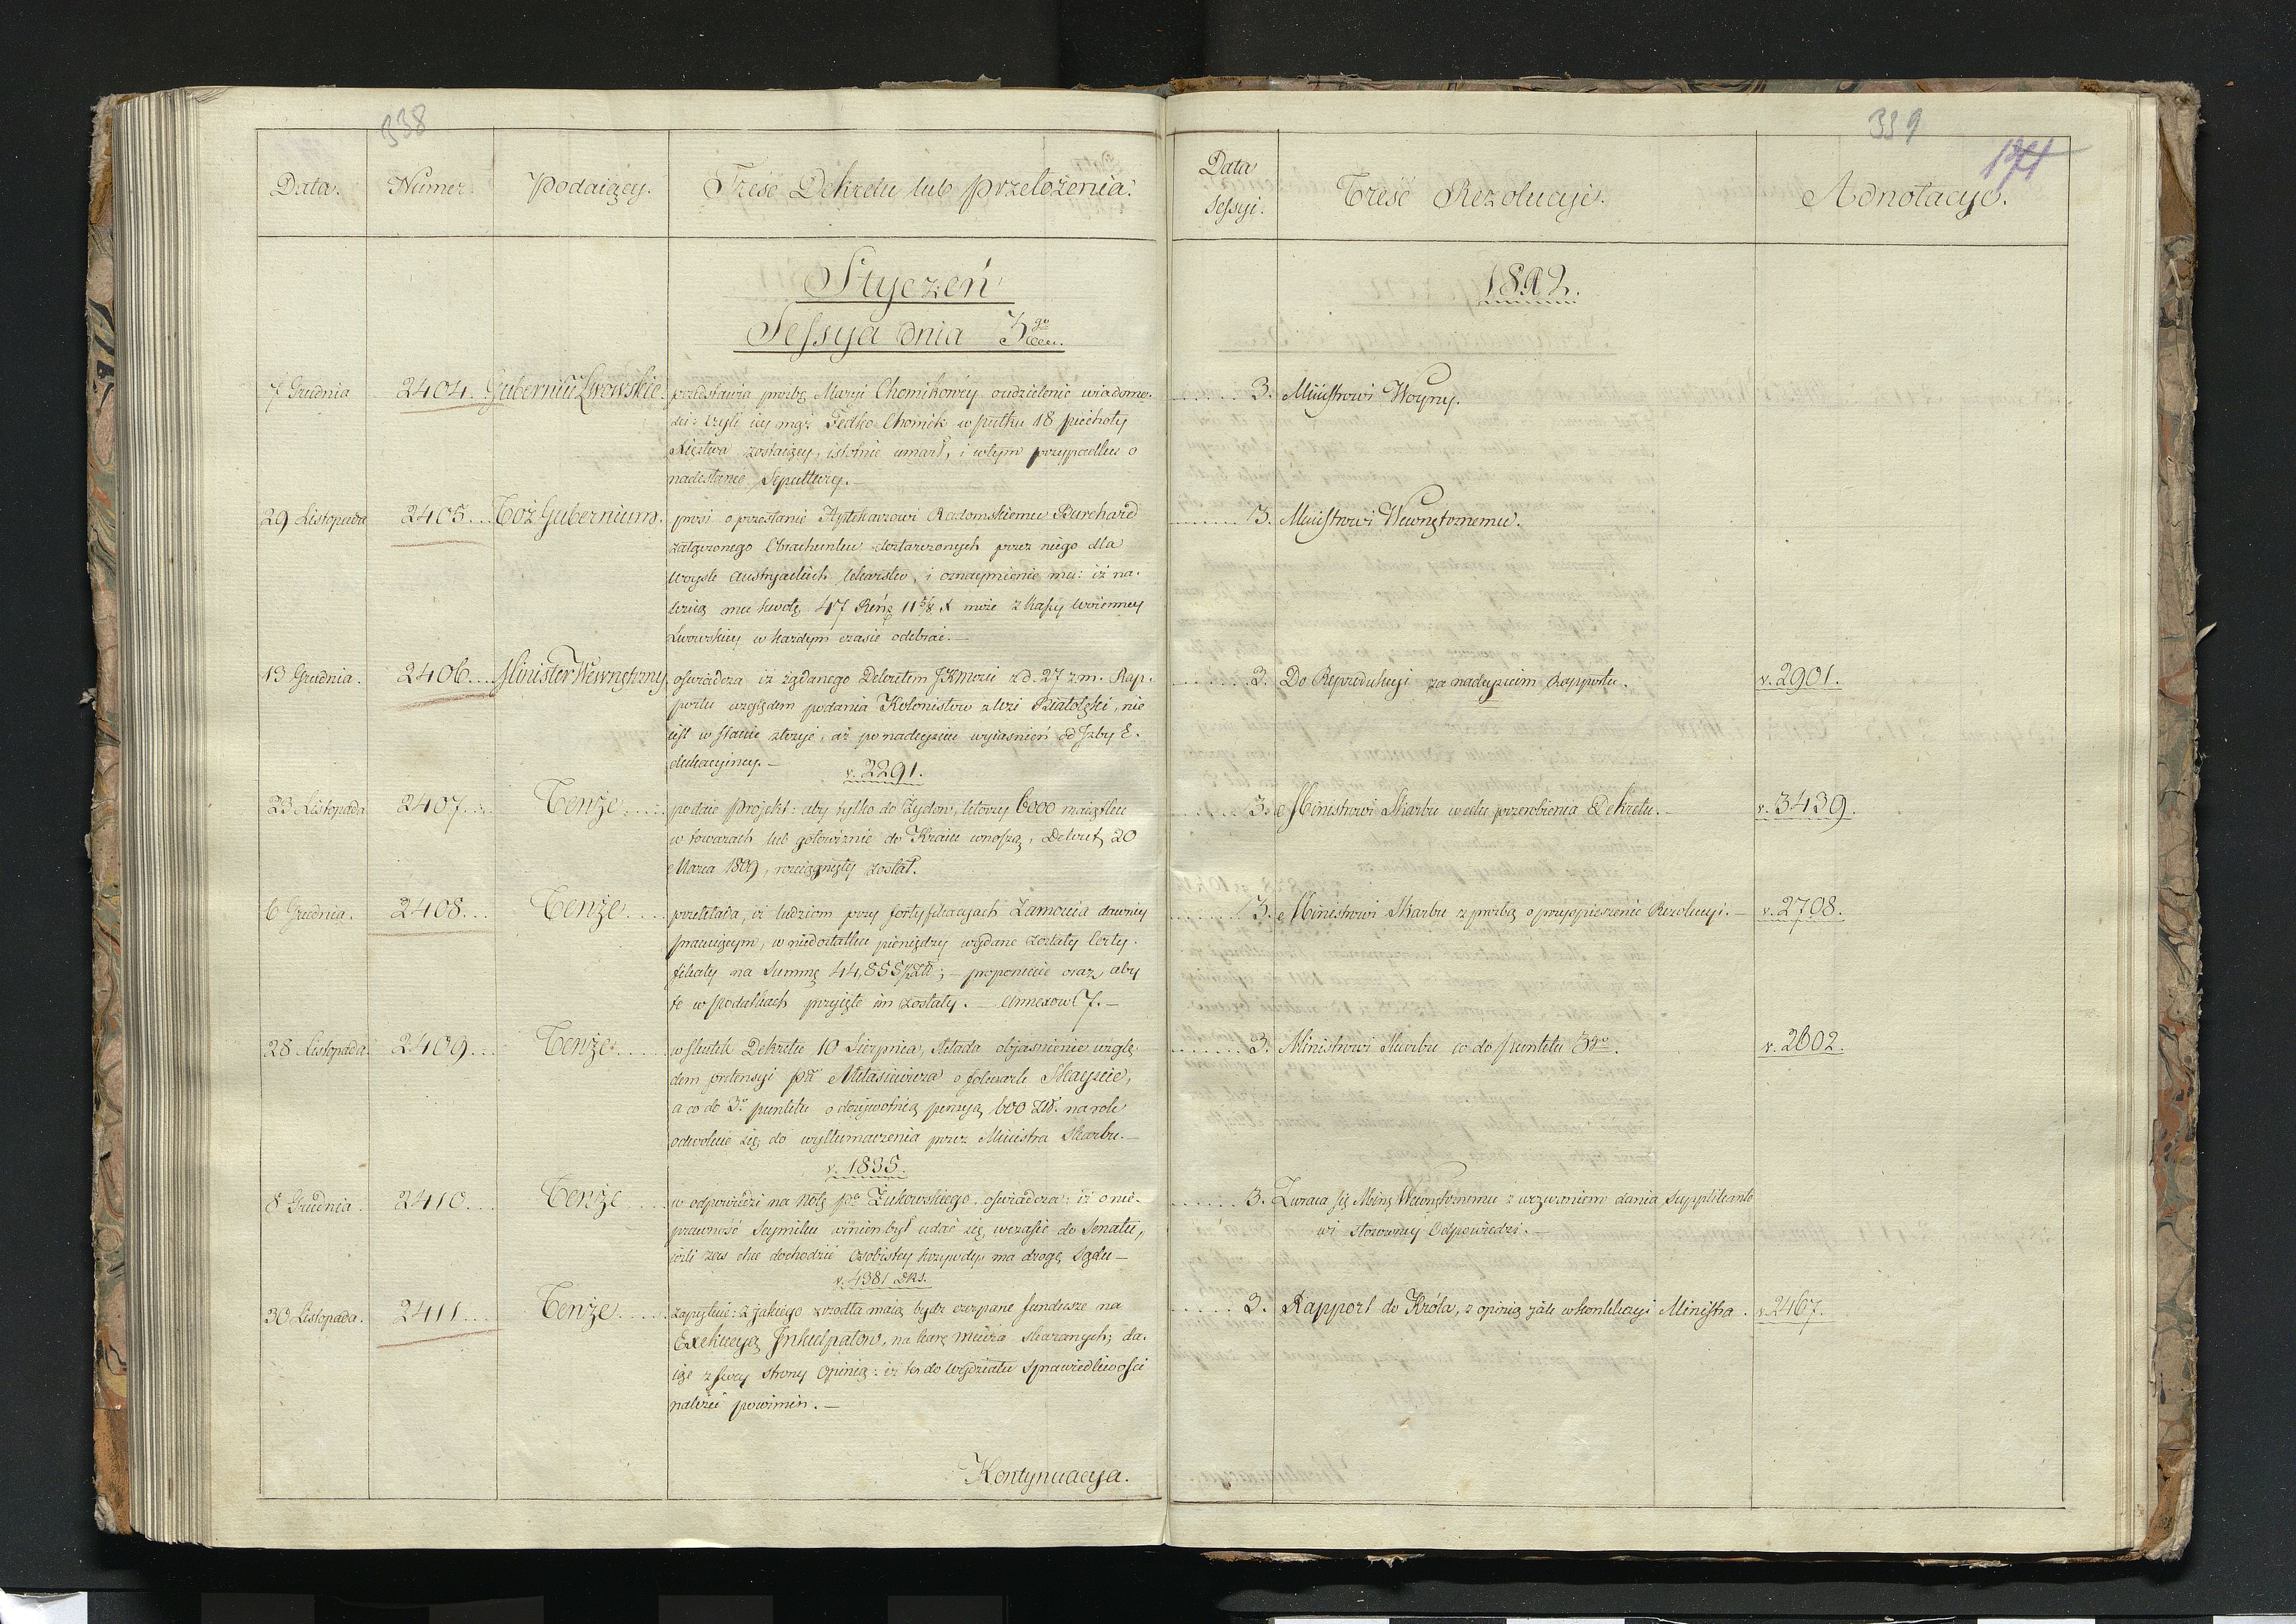 338
Data. Numer. Podaiący. Treść Dekretu lub przełożenia.
Styczeń
Sessya dnia 3go
7 Grudnia 2404. Gubernium Lwowskie. przedstawia prośbę Maryi Chomikowéy o udzielenie wiadomo-
ści: czyli iéy mąż Fedko Chomik w pułku 18 piechoty
Xięztwa zostaiący, istotnie umarł, i w tym przypadku o
nadesłanie Sepultury.—
29 Listopada 2405... Toż Gubernium. prosi o przesłanie Aptekarzowi Radomskiemu Burchard
załączonego Obrachunku dostarczonych przez niego dla
Woysk Austryackich lekarstw, i oznaymienie mu: iż na-
leżącą mu kwotę 47 Reńs 11 5/8 X może z Kassy Woienney
Lwowskiey w każdym czasie odebrać.—
13 Grudnia. 2406.... Minister Wewnętrzny oświadcza iż żądanego Dekretem JKMości z d. 27 z.m. Rap-
portu względem podania Kolonistow z Wsi Białołęki, nie
iest w stanie złożyć, aż po nadeyściu wyiaśnień od Izby E-
dukacyiney.—
v. 2291.
23 Listopada 2407... Tenże..... podaie projekt: aby tylko do Żydow, ktorzy 6000 maiątku
w towarach lub gotowiznie do Kraiu wnoszą, Dekret 20
Marca 1809, rozciągnięty został.
6 Grudnia. 2408... Tenże..... przekłada, iż ludziom przy fortyfikacyach Zamościa dawniey
pracuiącym, w niedostatku pieniędzy wydane zostały Certy-
fikaty na Summę 44,855 Złł; — proponuie oraz, aby
te w podatkach przyięte im zostały. — Annexow 7.—
28 Listopada. 2409... Tenże..... w skutek Dekretu 10 Sierpnia, składa obiaśnienie wzglę-
dem pretensyi Pa Mitasiewicza o folwark
a co do 3o punktu o dożywotnią pensyą 600 Złł. na rok
odwołuie się do wytłumaczenia przez Ministra Skarbu.—
v. 1835.
8 Grudnia. 2410... Tenże..... w odpowiedzi na notę Po Żukowskiego oświadcza: iż o nie-
prawność Seymiku winien był udać się wczasie do Senatu,
ieśli zaś chce dochodzić osobistey krzywdy ma drogę Sądu—
v. 4381 Dks.
30 Listopada. 2411.... Tenże..... zapytuie: z iakiego zrzodła maią bydź czerpane fundusze na
Exekucyą Inkulpatow, na karę miecza skazanych; da-
iąc z swey strony opinią: iż to do Wydziału Sprawiedliwości
należeć powinien.—
Kontynuacya.
339
171
Data Sessyi. Treść Rezolucyi. Adnotacye.
1812.
...... 3. Ministrowi Woyny.
...... 3. Ministrowi Wewnętrznemu.
...... 3. Do Reprodukcyi za nadeyściem Rapportu. v. 2901.
...... 3. Ministrowi Skarbu w celu przerobienia Dekretu.— v. 3439.
...... 3. Ministrowi Skarbu z prośbą o przyspieszenie Rezolucyi.— v. 2708.
...... 3. Ministrowi Skarbu co do punktu 3go. v. 2602.
...... 3. Zwraca się Minis Wewnętrznemu z wezwaniem dania Supplikanto-
wi stosowney Odpowiedzi.—
...... 3. Rapport do Króla, z opinią iak w konkluzyi Ministra. v. 2467.